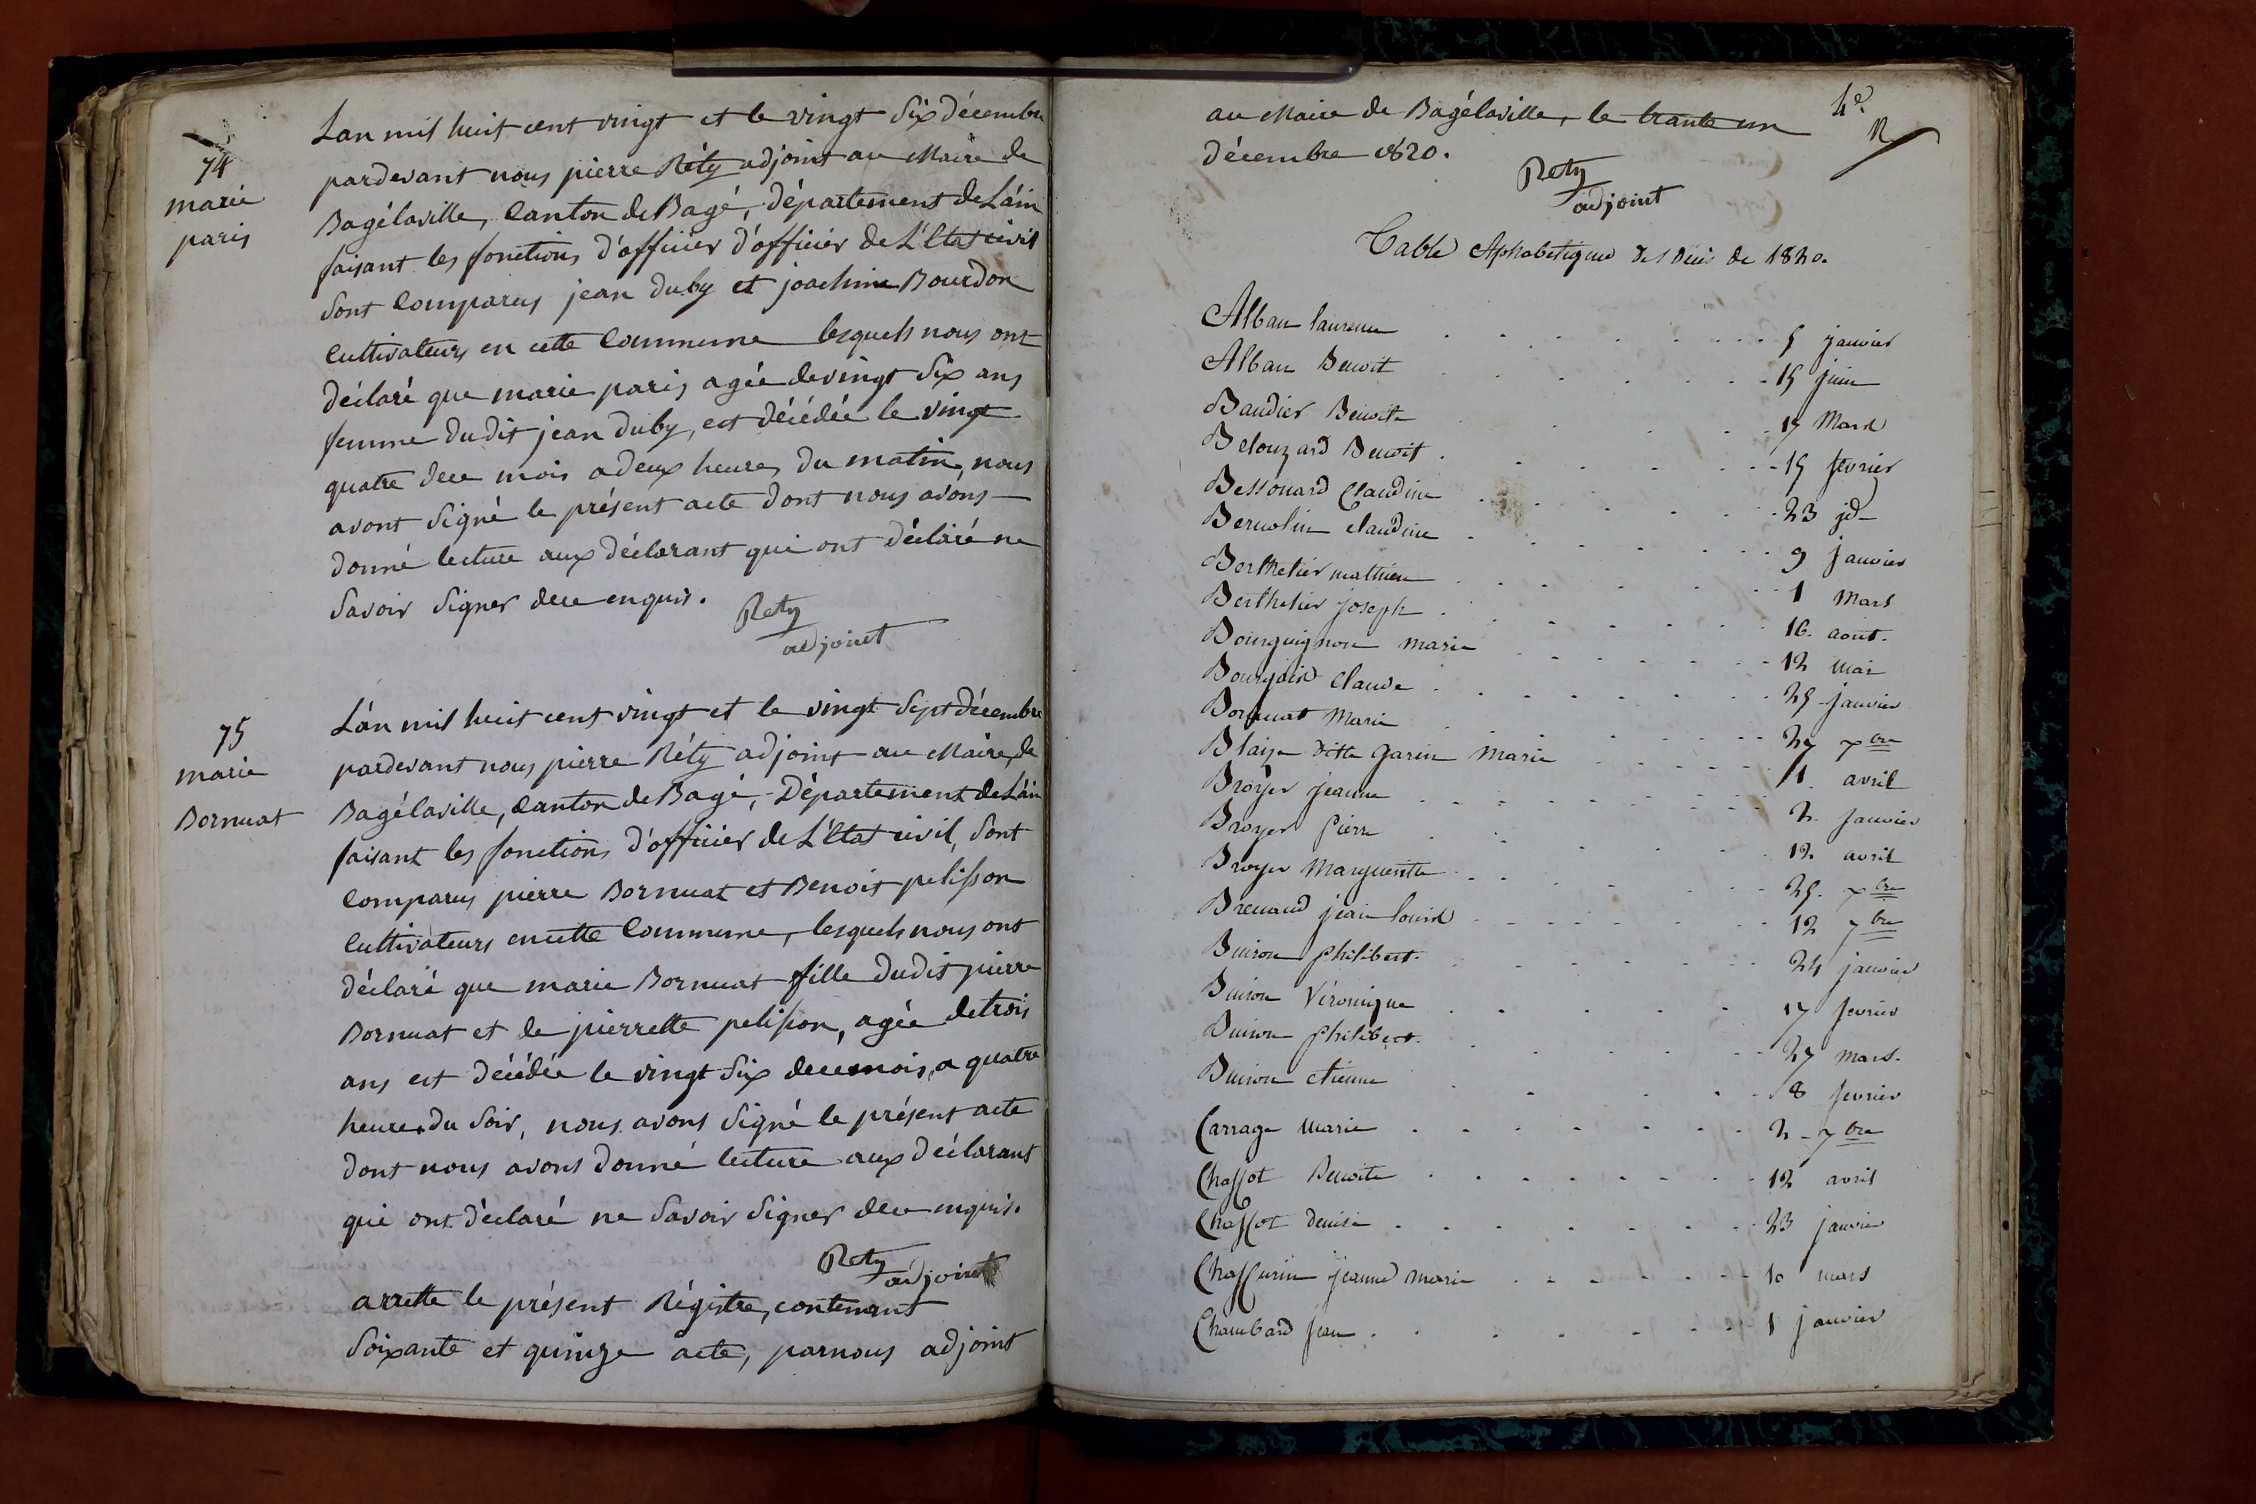 74
marie
paris
Lan mil huit cent vingt et le vingt Six décembre
pardevant nous pierre Réty adjoint au Maire de
Bagélaville, Canton de Bagé, département de L'ain
faisant les fonctions d'officier d'officier de L'Etat civil
Sont Comparus jean duby et joachim Bourdon
Cultivateurs en cette Commune lesquels nous ont
déclaré que marie paris agée de vingt Six ans
femme dudit jean duby, est décédée le vingt
quatre dece mois a deux heures du matin, nous
avont Signé le présent acte dont nous avons
donné lecture aux déclarant qui ont déclaré ne
Savoir Signer dece enquis.
Rety
adjoint
75
marie
Bornuat
L'an mil huit cent vingt et le vingt Sept décembre
pardevant nous pierre Réty adjoint au Maire de
Bagélaville, Canton de Bagé, Département de L'ain
faisant les fonctions d'officier de L'Etat civil, Sont
Comparus pierre Bornuat et Benoit pelisson
Cultivateurs en cette Commune, lesquels nous ont
déclaré que marie Bornuat fille dudit pierre
Bornuat et de pierrette pelisson, agée de trois
ans est décédée le vingt Six dece mois, a quatre
heures du Soir, nous avons Signé le présent acte
dont nous avons donné lecture aux déclarant
qui ont déclaré ne Savoir Signer dece enquis.
Rety
adjoint
arrette le présent Régistre, contenant
Soixante et quinze acte, par nous adjoint
au Maire de Bagélaville, le trante un
décembre 1820.
Rety
adjoint
Table Alphabetique des Décès de 1820.
Alban laurence 5 janvier
Alban Benoit 15 juin
Baudier Benoite 17 Mars
Belouzard Benoit 15 fevrier
Bessonard Claudine 23 id
Bernolin claudine 9 janvier
Berthelier mathieu 1 Mars
Berthelier joseph 16 aout
Bourguignon marie 12 mai
Bourgeois Claude 25 janvier
Bornuat Marie 27 xbre
Blaize ditte Garin Marie 11 avril
Broyer jeanne 2 janvier
Broyer Pierre 12 avril
Broyer Marguerite 25 xbre
Brenaud jean louis 12 7bre
Buiron philibert 24 janvier
Buiron Véronique 17 fevrier
Buiron philibert 27 mars
Buiron etienne 8 fevrier
Carrage marie 2 7bre
Chassot Benoite 12 avril
Chassot denise 23 janvier
jeanne marie 10 mars
Chambard jean 1 janvier